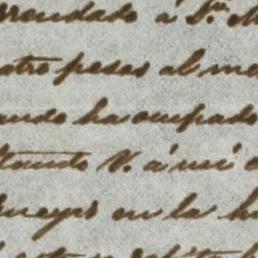 rrendado á Dn. M
atro pesos al me
ando ha ocupado
tando V. á mi
ueyes en la ha